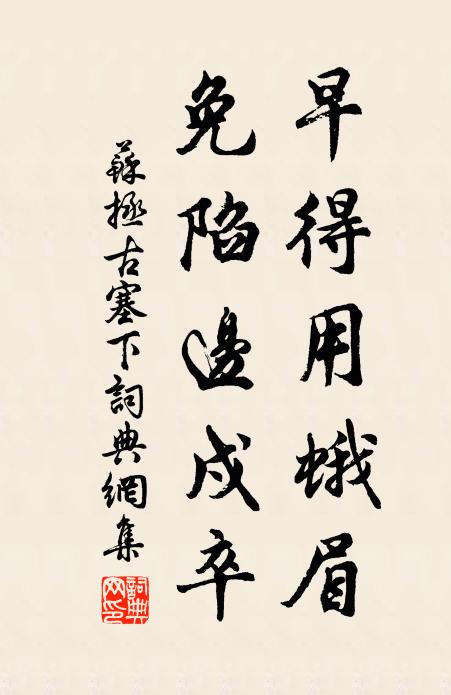 早得用蛾眉
免陷邊戍卒
蘇拯古塞下詞典網集
詞典网印